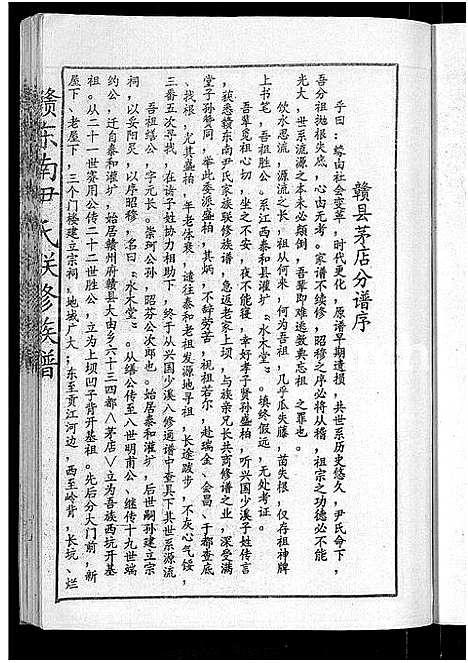 赣县茅店分谱序
予曰：缘由社会变革，时代更化，原谱早期遗损，共世系历史悠久，尹氏命下，
吾分祖抛根失底，心由无考。家谱不续修，昭穆之序必将从稽，祖宗之功德必不能
光大，世系流源之本未必颠倒，吾辈即难逃数典忘祖 之罪也。
饮水思流，源流之长，祖从何来，何为吾祖，几乎瓜失藤，苗失根，仅存祖神牌
上书笔，吾祖胜公。系江西泰和县灌圹“水木堂”。填终假远，无处考证。
吾辈觅祖心切，坐之不安，夜不能寝，幸好孝子贤孙盛柏，听兴国少溪子姓传言
，获悉赣东南尹氏家族联修族谱，急返老家上坝，与族亲兄长共商修谱之业，深受满
堂子孙赞同，举此委派盛柏，其炳，不辞劳苦，祝祖若尔，赴瑞金、会昌、于都查底
、找根，尤其盛柏，年老体衰，遣往和老祖发源地寻祖，长途跋步，不灰心气馁，
三番五次寻找，在诸子姓协力相助下，终于从兴国少溪八修通谱中查具下其世系源流
吾祖缮公，字元长。崇珂公孙，昭芬公次郎也。始居泰和灌圹，后世嗣孙建立宗
祠，以妥阳灵，以序昭穆，名曰：“水木堂”。从缮公传至八世明甫公、继传十九世端
约公，迁自泰和灌圹，始居赣州府赣县大由乡六十三四都〈茅店〉立为吾族西坑开基
祖。从二十一世赛用公传二十二世胜公，立为上坝凹子背开基祖。先后分大门前，新
屋下、老屋下，三个门楼建立宗祠，地域广大；东至贡江河边，西至岭背，长坑、烂
赣东南尹氏联修族谱